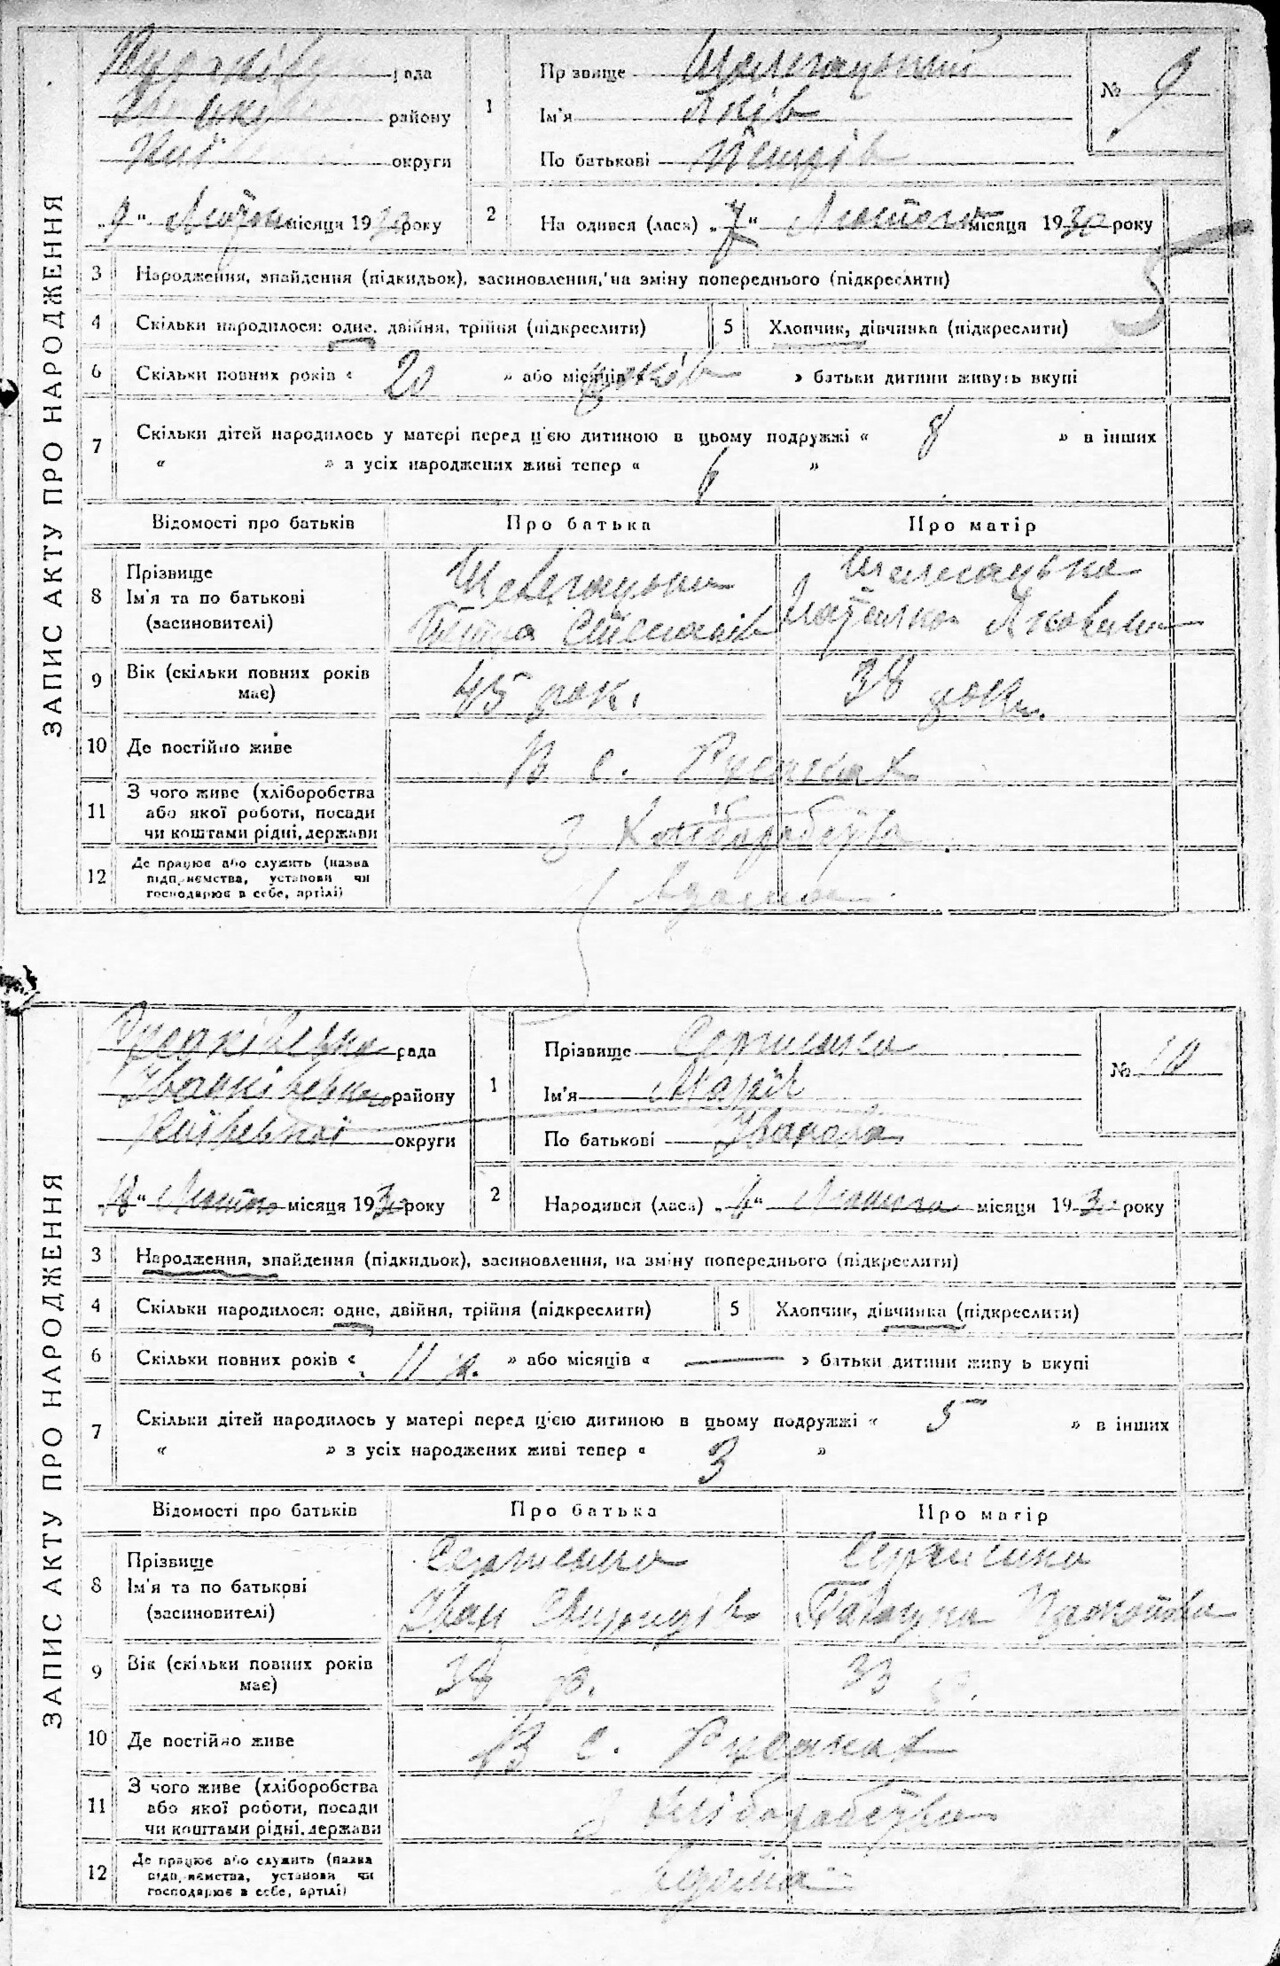 ЗАПИС АКТУ ПРО НАРОДЖЕННЯ
рада
району
округи
1
Пр звище
Ім'я Яків
По батькові Петрів
№ 9
„9“ місяця 1930 року
2
На одився (лася) „7“ Лютого місяця 1930 року
3 Народження, знайдення (підкидьок), засиновлення, на зміну попереднього (підкреслити)
4 Скільки народилося: одне, двійня, трійня (підкреслити)
5 Хлопчик, дівчинка (підкреслити)
6 Скільки повних років « 20 » або місяців « років » батьки дитини живуть вкупі
7 Скільки дітей народилось у матері перед ц'єю дитиною в цьому подружжі « 8 » в інших
« » з усіх народжених живі тепер « 6 »
Відомості про батьків Про батька Про матір
8 Прізвище
Ім'я та по батькові
(засиновителі)
Петро Степанів
9 Вік (скільки повних років має) 45 рок. 38 рок.
10 Де постійно живе В с.
11 З чого живе (хліборобства або якої роботи, посади чи коштами рідні, держави З Хліборобства
12 Де працює або служить (назва підп,иємства, установи чи господарює в себе, артілі)
ЗАПИС АКТУ ПРО НАРОДЖЕННЯ
рада
Іванківського району
Київської округи
1
Прізвище
Ім'я Марія
По батькові Іванова
№ 10
„ “ Лютого місяця 1930 року
2
Народився (лася) „6“ Лютого місяця 1930 року
3 Народження, знайдення (підкидьок), засиновлення, на зміну попереднього (підкреслити)
4 Скільки народилося: одне, двійня, трійня (підкреслити)
5 Хлопчик, дівчинка (підкреслити)
6 Скільки повних років « 11 р. » або місяців « — » батьки дитини живу ь вкупі
7 Скільки дітей народилось у матері перед ц'єю дитиною в цьому подружжі « 5 » в інших
« » з усіх народжених живі тепер « 3 »
Відомості про батьків Про батька Про матір
8 Прізвище
Ім'я та по батькові
(засиновителі)
Іван
9 Вік (скільки повних років має) р. 33 р.
10 Де постійно живе В с.
11 З чого живе (хліборобства або якої роботи, посади чи коштами рідні, держави З хліборобства
12 Де працює або служить (назва підп,иємства, установи чи господарює в себе, артілі)